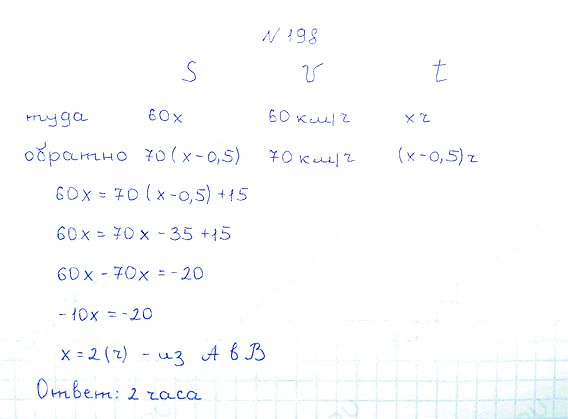 N 198
S v t
туда 60x 60 км/ч x ч
обратно 70(x-0,5) 70 км/ч (x-0,5)ч
60x = 70(x-0,5)+15
60x = 70x - 35 +15
60x - 70x = -20
-10x = -20
x = 2(ч) - из A в B
Ответ: 2 часа